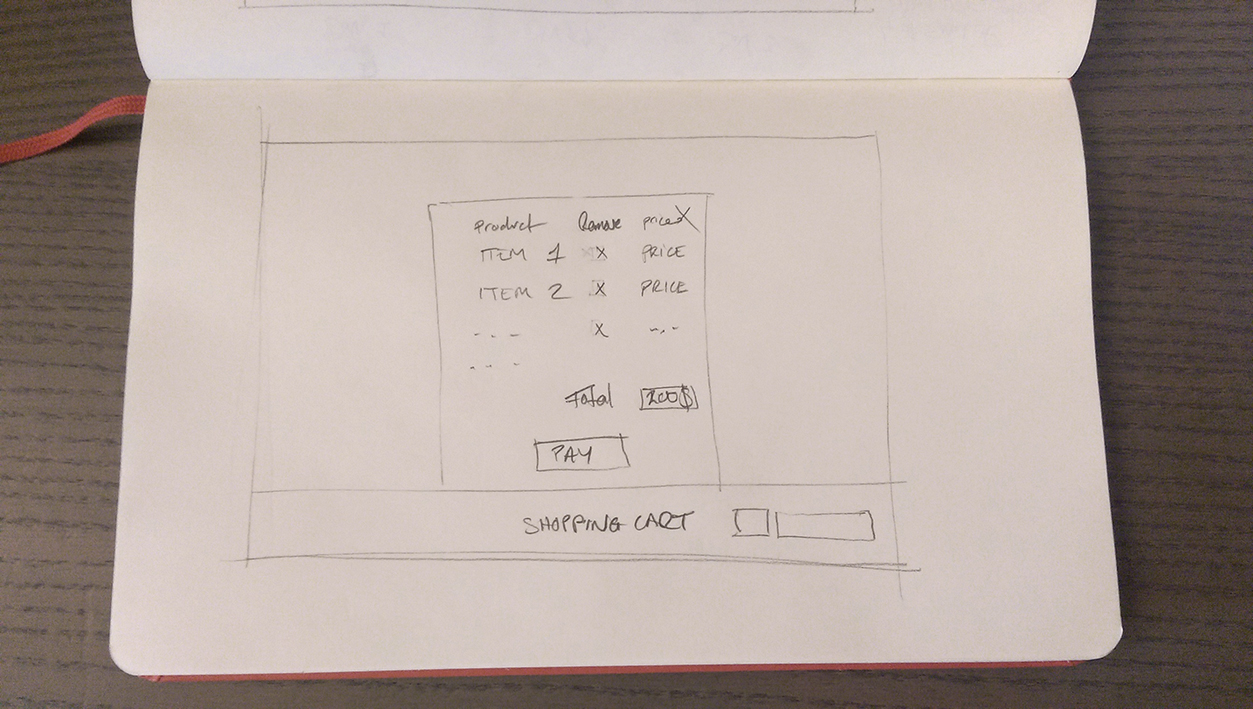 Product Remove price X
ITEM 1 X PRICE
ITEM 2 X PRICE
--- X -.-
---
Total 200$
PAY
SHOPPING CART